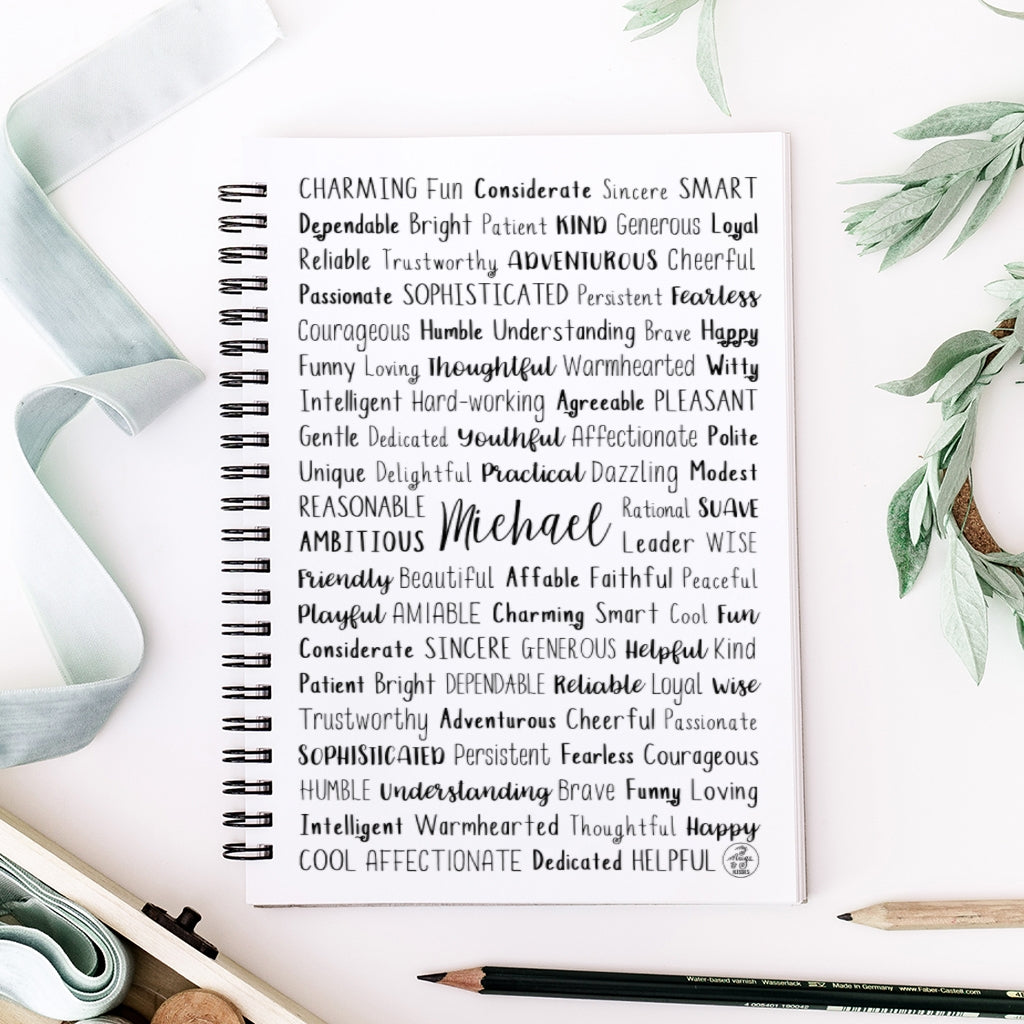 CHARMING Fun Considerate Sincere SMART
Dependable Bright Patient KIND Generous Loyal
Reliable Trustworthy ADVENTUROUS Cheerful
Passionate SOPHISTICATED Persistent Fearless
Courageous Humble Understanding Brave Happy
Funny Loving Thoughtful Warmhearted Witty
Intelligent Hard-working Agreeable PLEASANT
Gentle Dedicated Youthful Affectionate Polite
Unique Delightful Practical Dazzling Modest
REASONABLE Michael Rational SUAVE
AMBITIOUS Leader WISE
Friendly Beautiful Affable Faithful Peaceful
Playful AMIABLE Charming Smart Cool Fun
Considerate SINCERE GENEROUS Helpful Kind
Patient Bright DEPENDABLE Reliable Loyal Wise
Trustworthy Adventurous Cheerful Passionate
SOPHISTICATED Persistent Fearless Courageous
HUMBLE Understanding Brave Funny Loving
Intelligent Warmhearted Thoughtful Happy
COOL AFFECTIONATE Dedicated HELPFUL
KISSES
Water-based varnish Wasserlack Made in Germany www.Faber-Castell.com
4 005401 190042